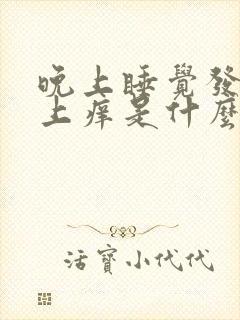 晚上睡覺發
上癢是什麼
活寶小代代